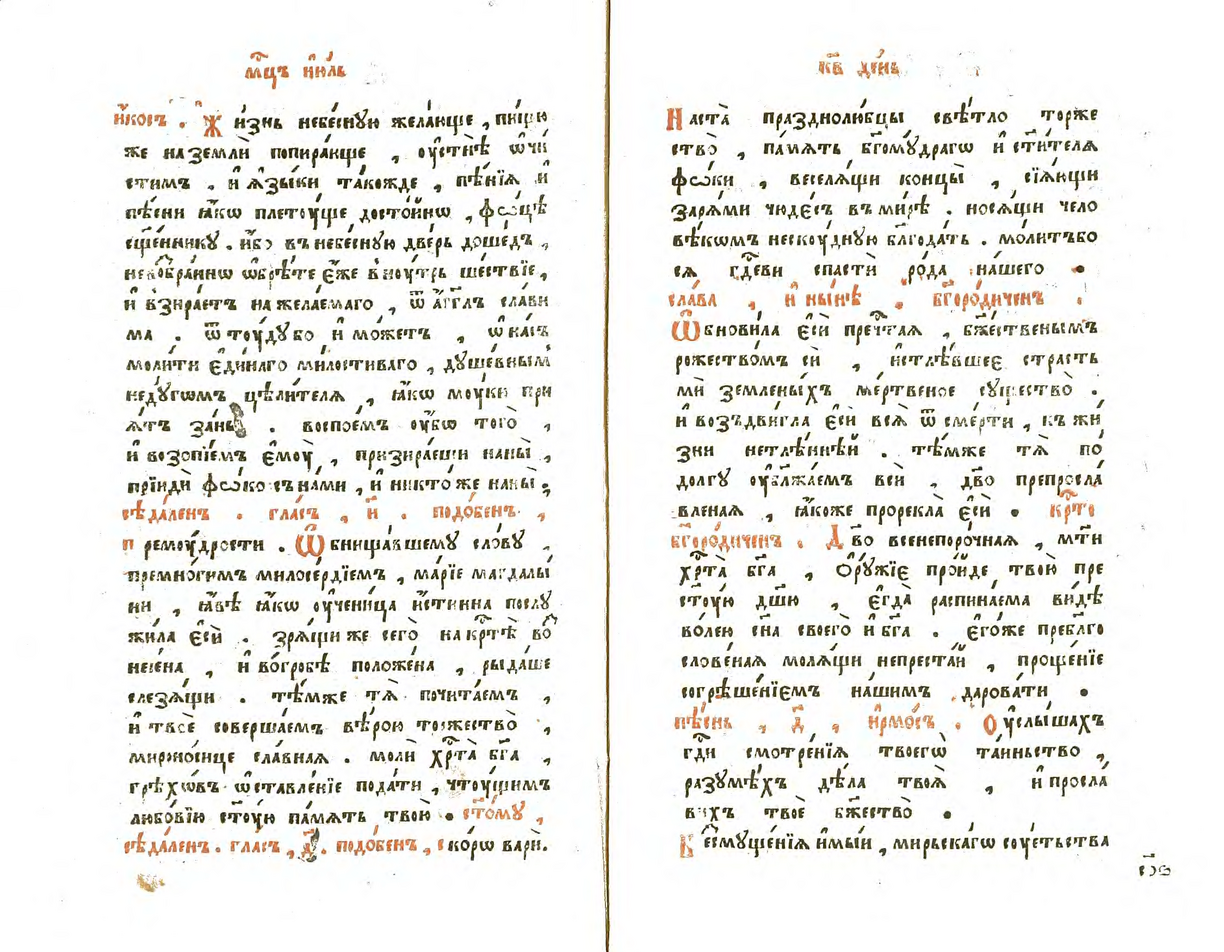 мⷭ҇цъ и҆ю́ль
и҆́косъ . Ж и́знь небе́сную жела́юще , пи́щю
же на землѝ попира́юще , ѹ҆стнѣ̀ ѡ҆чи
стимъ . и҆ ѧ҆зы́ки та́кожде , пѣ́нїѧ и҆
пѣ́сни ꙗ҆́кѡ плетѹ́ще досто́йнѡ , фѡцѣ̀
сщ҃е́ннику . и҆́бо в небе́сную две́рь доше́дъ ,
невозбра́ннѡ ѡ҆брѣ́те є҆́же внѹ́трь ше́ствїе ,
и҆ взира́етъ на жела́емаго , ѿ а҆́гг҃лъ сла́ви
ма . ѿтѹ́ду бо и҆ мо́жетъ , ѡ҆ на́съ
моли́ти є҆ди́наго ми́лостиваго , душе́внымъ
неду́гѡмъ цѣли́телѧ , ꙗ҆́кѡ мѹ́ки при
ѧ́тъ занѐ . воспое́мъ ѹ҆́бѡ того̀ ,
и҆ возопїе́мъ є҆мѹ̀ , призира́еши на ны̀ ,
прїидѝ фѡ́ко с на́ми , и҆ никто́же на ны̀ .
сѣда́ленъ . гла́съ , и҃ . подо́бенъ ,
п ремѹ́дрости . Ѡ҆ бнища́вшему сло́ву ,
премно́гимъ милосе́рдїемъ , марі́е магдалы́
ни , ꙗ҆́вѣ ꙗ҆́кѡ ѹ҆чени́ца и҆́стинна послу
жи́ла є҆сѝ . зрѧ́щи же сего̀ на крⷭ҇тѣ̀ во
несе́на , и҆ во гро́бѣ положе́на , рыда́ше
слезѧ́щи . тѣ́мже тѧ̀ почита́емъ ,
и҆ твоѐ соверша́емъ вѣ́рою торжество̀ ,
мироно́сице сла́внаѧ . молѝ хрⷭ҇та̀ бг҃а ,
грѣхѡ́въ ѡ҆ставле́нїе пода́ти , чтѹ́щимъ
любо́вїю ст҃ѹ́ю па́мѧть твою̀ . ст҃о́му ,
сѣда́ленъ . гла́съ , д҃ . подо́бенъ , с ко́рѡ варѝ .
к҃в де́нь
Н аста̀ празднолю́бцы свѣ́тло торже
ство̀ , па́мѧть бг҃ому́драгѡ и҆ ст҃и́телѧ
фѡ́ки , веселѧ́щи концы̀ , сїѧ́ющи
зарѧ́ми чюде́съ в ми́рѣ . носѧ́щи чело
вѣ́кѡмъ неску́дную блг҃ода́ть . мо́литъбо
сѧ гдⷭ҇еви спастѝ ро́да на́шего .
сла́ва , и҆ ны́нѣ . бг҃оро́диченъ .
Ѡ҆ бнови́ла є҆сѝ пречⷭ҇таѧ , бж҃е́ственымъ
рожество́мъ сѝ , и҆стлѣ́вшее страсть
мѝ земле́ныхъ ме́ртвеное существо̀ .
и҆ воздви́гла є҆сѝ всѧ̀ ѿ сме́рти , къ жи́
зни нетлѣ́ннѣй . тѣ́мже тѧ̀ по
долгу ѹ҆бл҃жа́емъ всѝ , дв҃о препросла́
вленаѧ , ꙗ҆́коже прорекла̀ є҆сѝ . крⷭ҇то
бг҃оро́диченъ . Д в҃о всенепоро́чнаѧ , мт҃и
хрⷭ҇та̀ бг҃а , о҆рꙋ́жїе про́йде твою̀ пре
ст҃ѹ́ю дш҃ю , є҆гда̀ распина́ема ви́дѣ
во́лею сн҃а своего̀ и҆ бг҃а . є҆го́же пребл҃го
слове́наѧ молѧ́щи непреста́й , проще́нїе
согрѣше́нїемъ на́шимъ дарова́ти .
пѣ́снь , д҃ , и҆рмо́съ . Ѹ҆ слы́шахъ
гдⷭ҇и смотре́нїѧ твоегѡ̀ та́иньство ,
разумѣ́хъ дѣла̀ твоѧ̀ , и҆ просла́
вихъ твоѐ бжество̀ .
Б есмуще́нїѧ и҆мы́й , ми́рьскагѡ сѹетьства